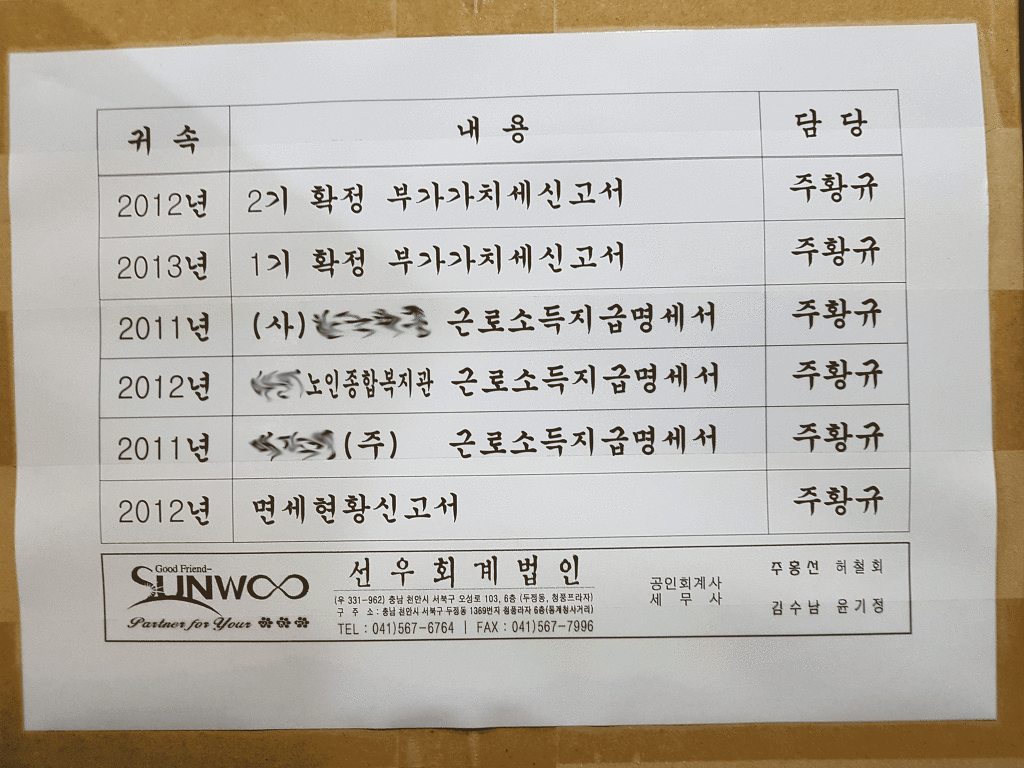 귀 속 내 용 담 당
2012년 2기 확정 부가가치세신고서 주황규
2013년 1기 확정 부가가치세신고서 주황규
2011년 (사) 근로소득지급명세서 주황규
2012년 노인종합복지관 근로소득지급명세서 주황규
2011년 (주) 근로소득지급명세서 주황규
2012년 면세현황신고서 주황규
Good Friend-
SUNWOO
Partner for Your
선우회계법인
(우 331-962) 충남 천안시 서북구 오성로 103, 6층 (두정동, 청풍프라자)
구 주 소 : 충남 천안시 서북구 두정동 1369번지 청풍프라자 6층(통계청사거리)
TEL : 041)567-6764 | FAX : 041)567-7996
공인회계사
세 무 사
주홍선 허철회
김수남 윤기정